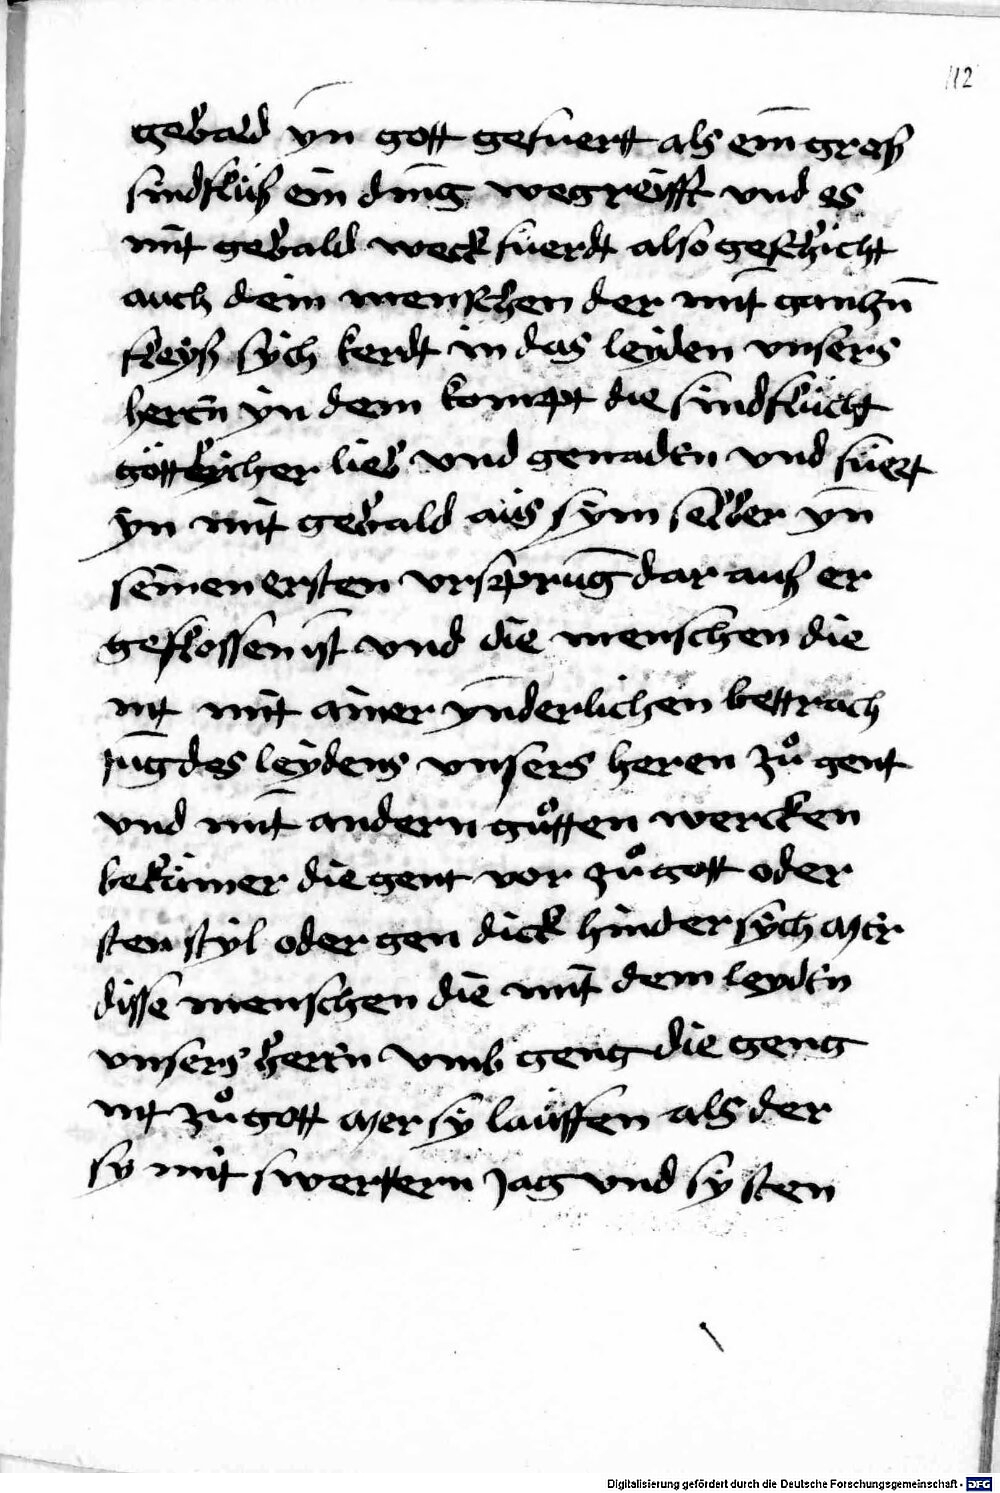 112
gewald yn̄ gott gefuertt als ein̄ gross
sindflüß ein ding wegreifft vnd es
mit gewald weck füerdt also geschicht
auch dem menschen der mit ganczn̄
fleyß sÿch kerdt in das leyden vnsers
herrn yn dem kompt die sindflücht
göttlÿcher lieb vnd genaden vnd füert
ÿn mit gewald aüs sÿm selber yn̄
seinen ersten vrsprūng dar auß er
geflossen ist vnd die menschen die
nit mit ainer yn̄derlichen bettrach
tūng des leÿdens vnsers heren zů gent
vnd mit andern gůtten wercken
bekümer die gent vor zů gott oder
sten stÿl oder gen dick hinder sÿch Mer
disse menschen die mit dem leyden
vnsers herrn vmb geng die geng
nit zů gott Mer sÿ lauffen als der
sy mit swertern Jag vnd sÿ sten
Digitalisierung gefördert durch die Deutsche Forschungsgemeinschaft - DFG